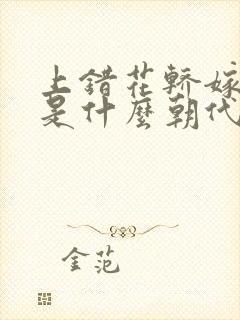 上错花轿嫁
是什麼朝代
金范